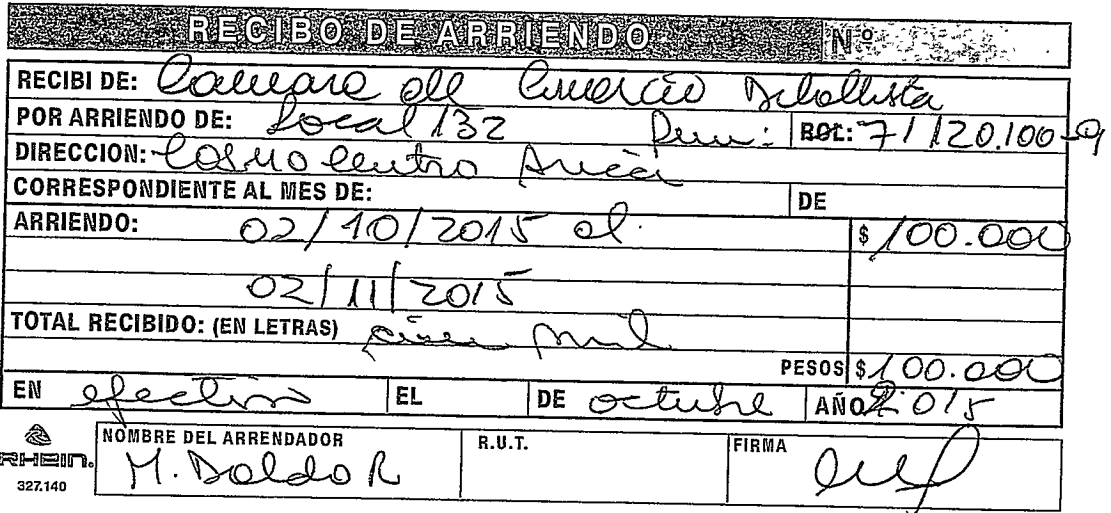 RECIBO DE ARRIENDO Nº
RECIBI DE: Camara del Comercio Detallista
POR ARRIENDO DE: Local 132 Rum: ROL: 71120.100-9
DIRECCION: Cosmo Centro Arica
CORRESPONDIENTE AL MES DE: DE
ARRIENDO: 02/10/2015 al $ 100.000
02/11/2015
TOTAL RECIBIDO: (EN LETRAS) mil
PESOS $ 100.000
EN efectivo EL DE octubre AÑO 2015
NOMBRE DEL ARRENDADOR R.U.T. FIRMA
RHEIN. M. Doldo R
327.140